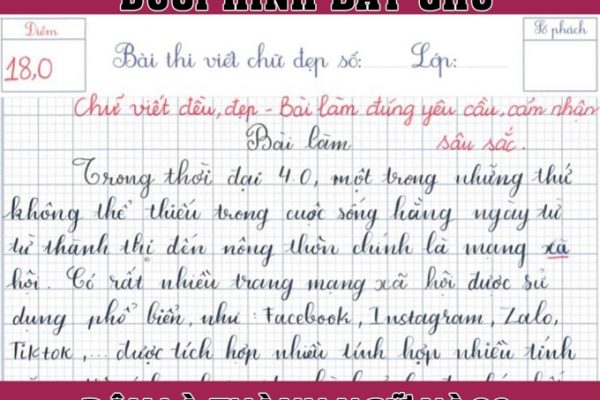 ĐUỔI HÌNH BẮT CHỮ
Điểm
Số phách
18,0
Bài thi viết chữ đẹp số: Lớp:
Chữ viết đều, đẹp - Bài làm đúng yêu cầu, cảm nhận
sâu sắc.
Bài làm
Trong thời đại 4.0, một trong những thứ
không thể thiếu trong cuộc sống hằng ngày từ
từ thành thị đến nông thôn chính là mạng xã
hội. Có rất nhiều trang mạng xã hội được sử
dụng phổ biến, như: Facebook, Instagram, Zalo,
Tiktok,... được tích hợp nhiều tính hợp nhiều tính
ĐÂY LÀ THÀNH NGỮ NÀO?